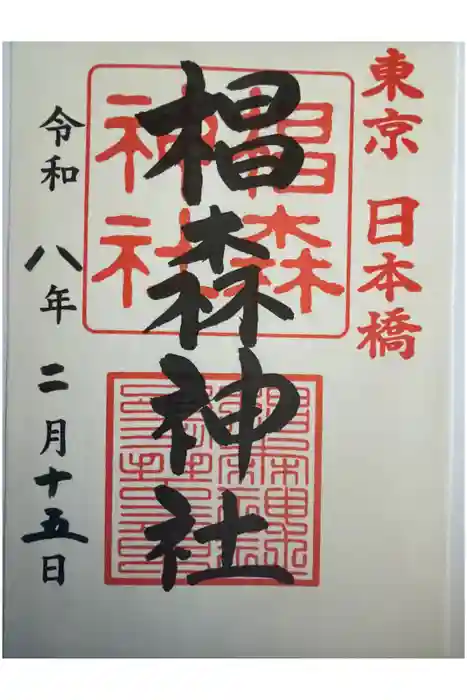 東京 日本橋
椙森神社
椙森
神社
令和 八年 二月十五日